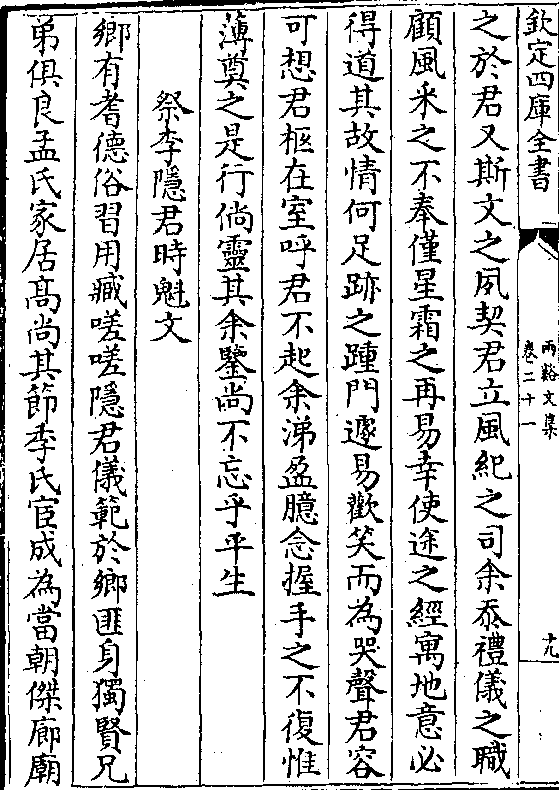 欽定四庫全書
兩谿文集
卷二十一
十九
之於君又斯文之夙契君立風紀之司余忝禮儀之職
顧風采之不奉僅星霜之再易幸使途之經寓地意必
得道其故情何足跡之踵門遽易歡笑而為哭聲君容
可想君柩在室呼君不起余涕盈臆念握手之不復惟
薄奠之是行倘靈其余鑒尚不忘乎平生
祭李隱君時魁文
鄉有耆德俗習用臧嗟嗟隱君儀範於鄉匪身獨賢兄
弟俱良孟氏家居髙尚其節季氏宦成為當朝傑廊廟